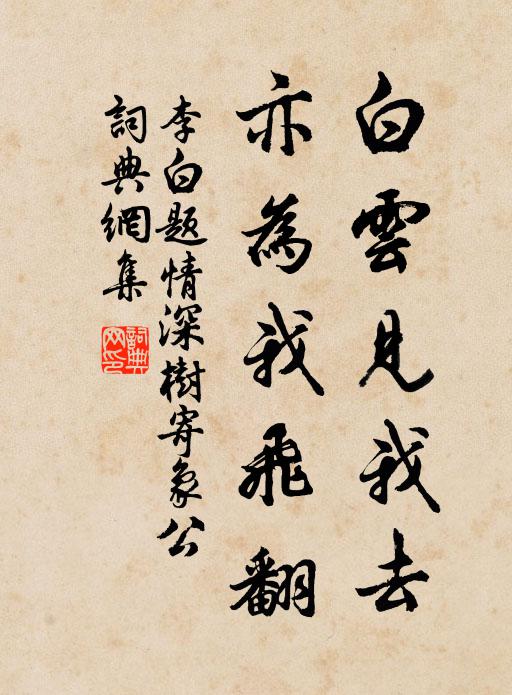 白雲見我去
亦為我飛翻
李白题情深樹寄象公
詞典網集
詞典網印